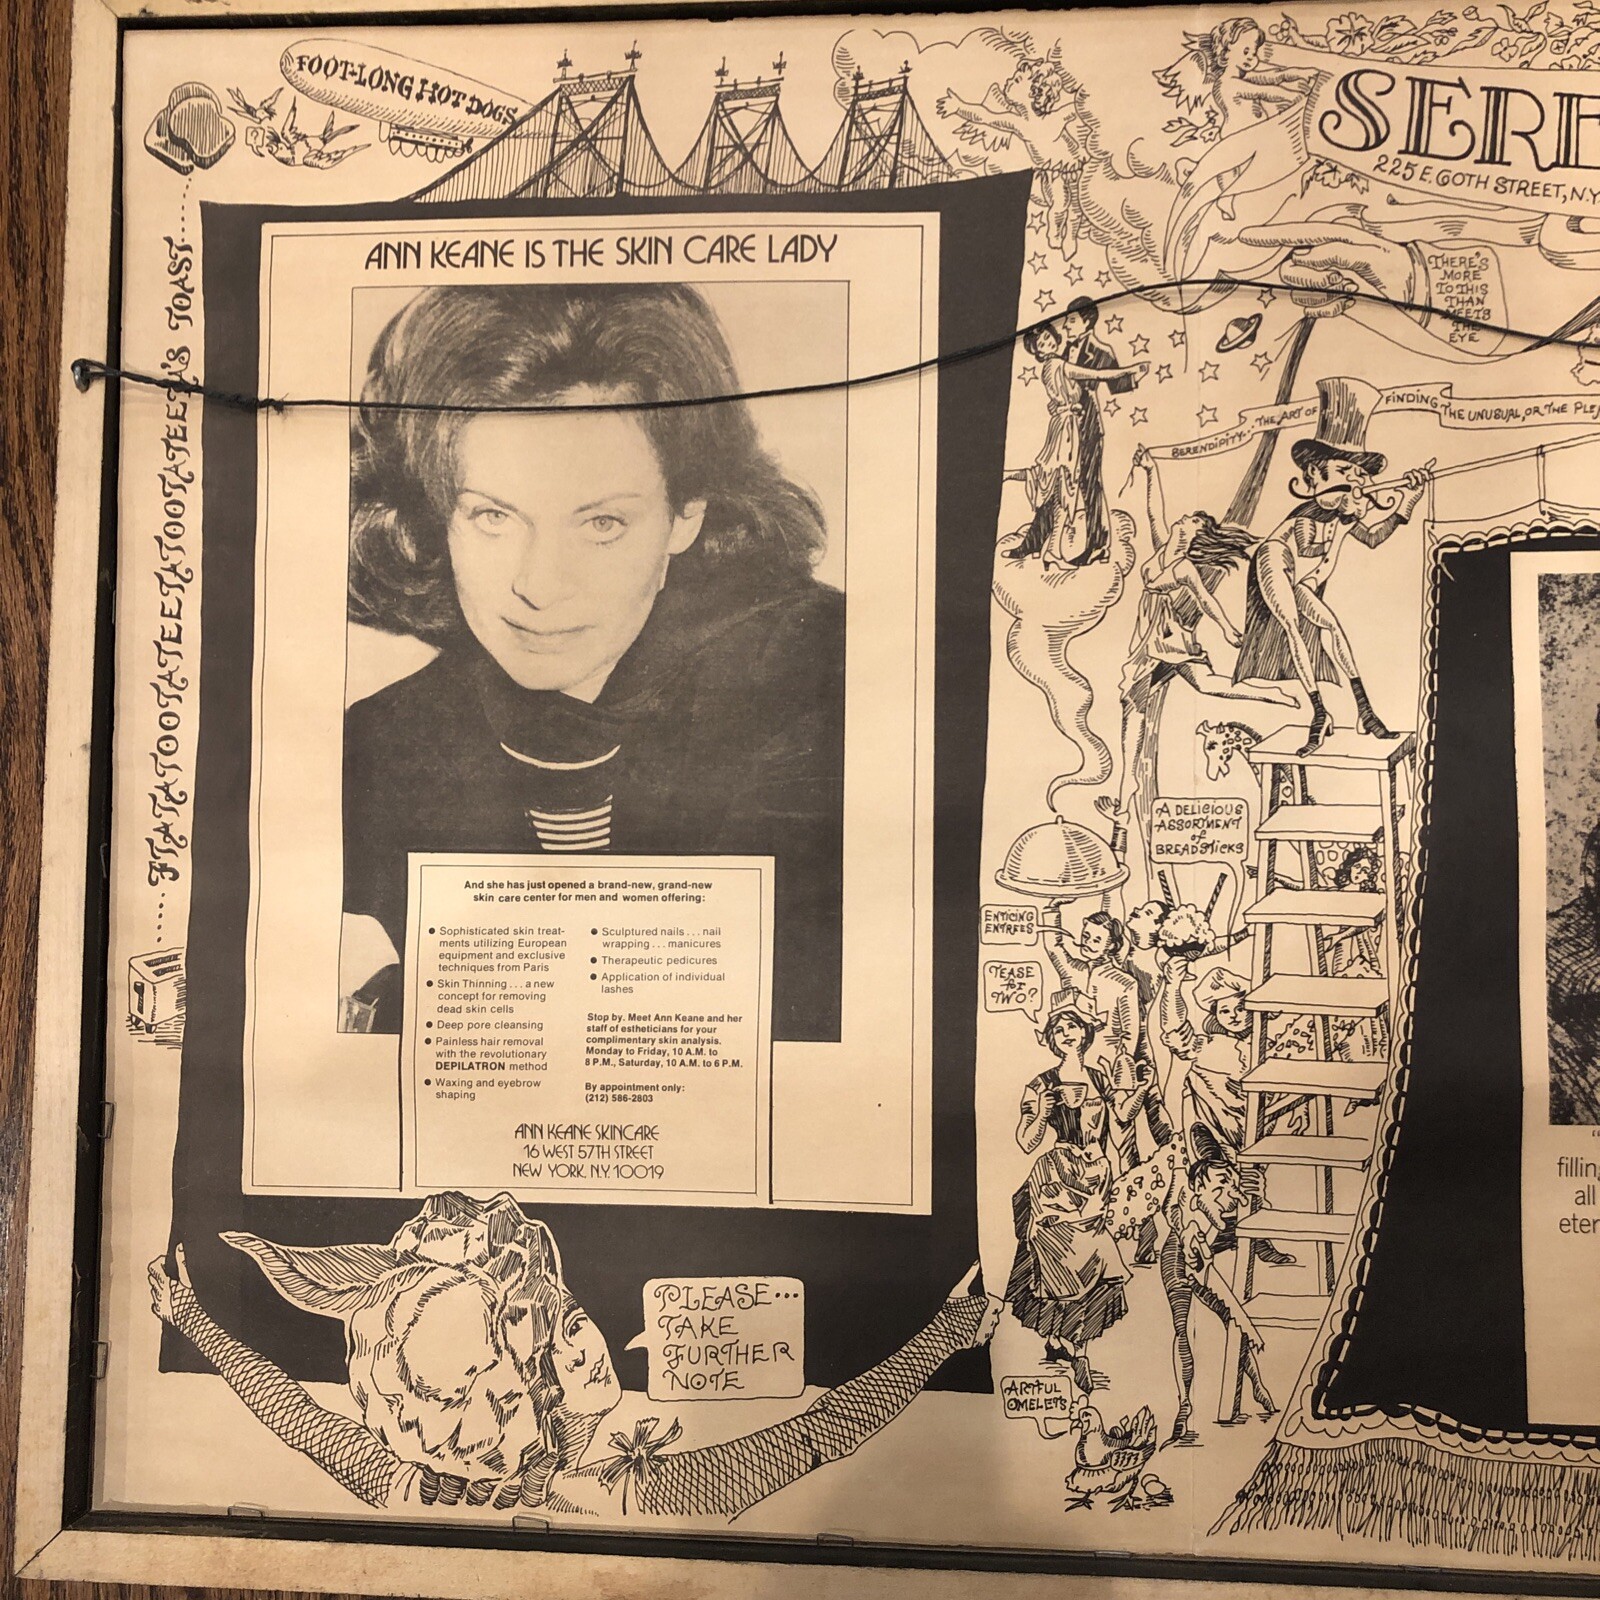 FOOT-LONG HOT DOGS
SERE
225 E. 60TH STREET, N.Y.
ANN KEANE IS THE SKIN CARE LADY
THERE'S
MORE
TO THIS
THAN
MEETS
THE
EYE
SERENDIPITY... THE ART OF FINDING THE UNUSUAL, OR THE
A DELICIOUS
ASSORTMENT
of
BREADSTICKS
And she has just opened a brand-new, grand-new
skin care center for men and women offering:
● Sophisticated skin treat-
ments utilizing European
equipment and exclusive
techniques from Paris
● Skin Thinning . . . a new
concept for removing
dead skin cells
● Deep pore cleansing
● Painless hair removal
with the revolutionary
DEPILATRON method
● Waxing and eyebrow
shaping
● Sculptured nails . . . nail
wrapping . . . manicures
● Therapeutic pedicures
● Application of individual
lashes
Stop by. Meet Ann Keane and her
staff of estheticians for your
complimentary skin analysis.
Monday to Friday, 10 A.M. to
8 P.M., Saturday, 10 A.M. to 6 P.M.
By appointment only:
(212) 586-2803
ANN KEANE SKINCARE
16 WEST 57TH STREET
NEW YORK, N.Y. 10019
ENTICING
ENTREES
TEASE
for
TWO?
filling
all
eter
PLEASE...
TAKE
FURTHER
NOTE
ARTFUL
OMELETS